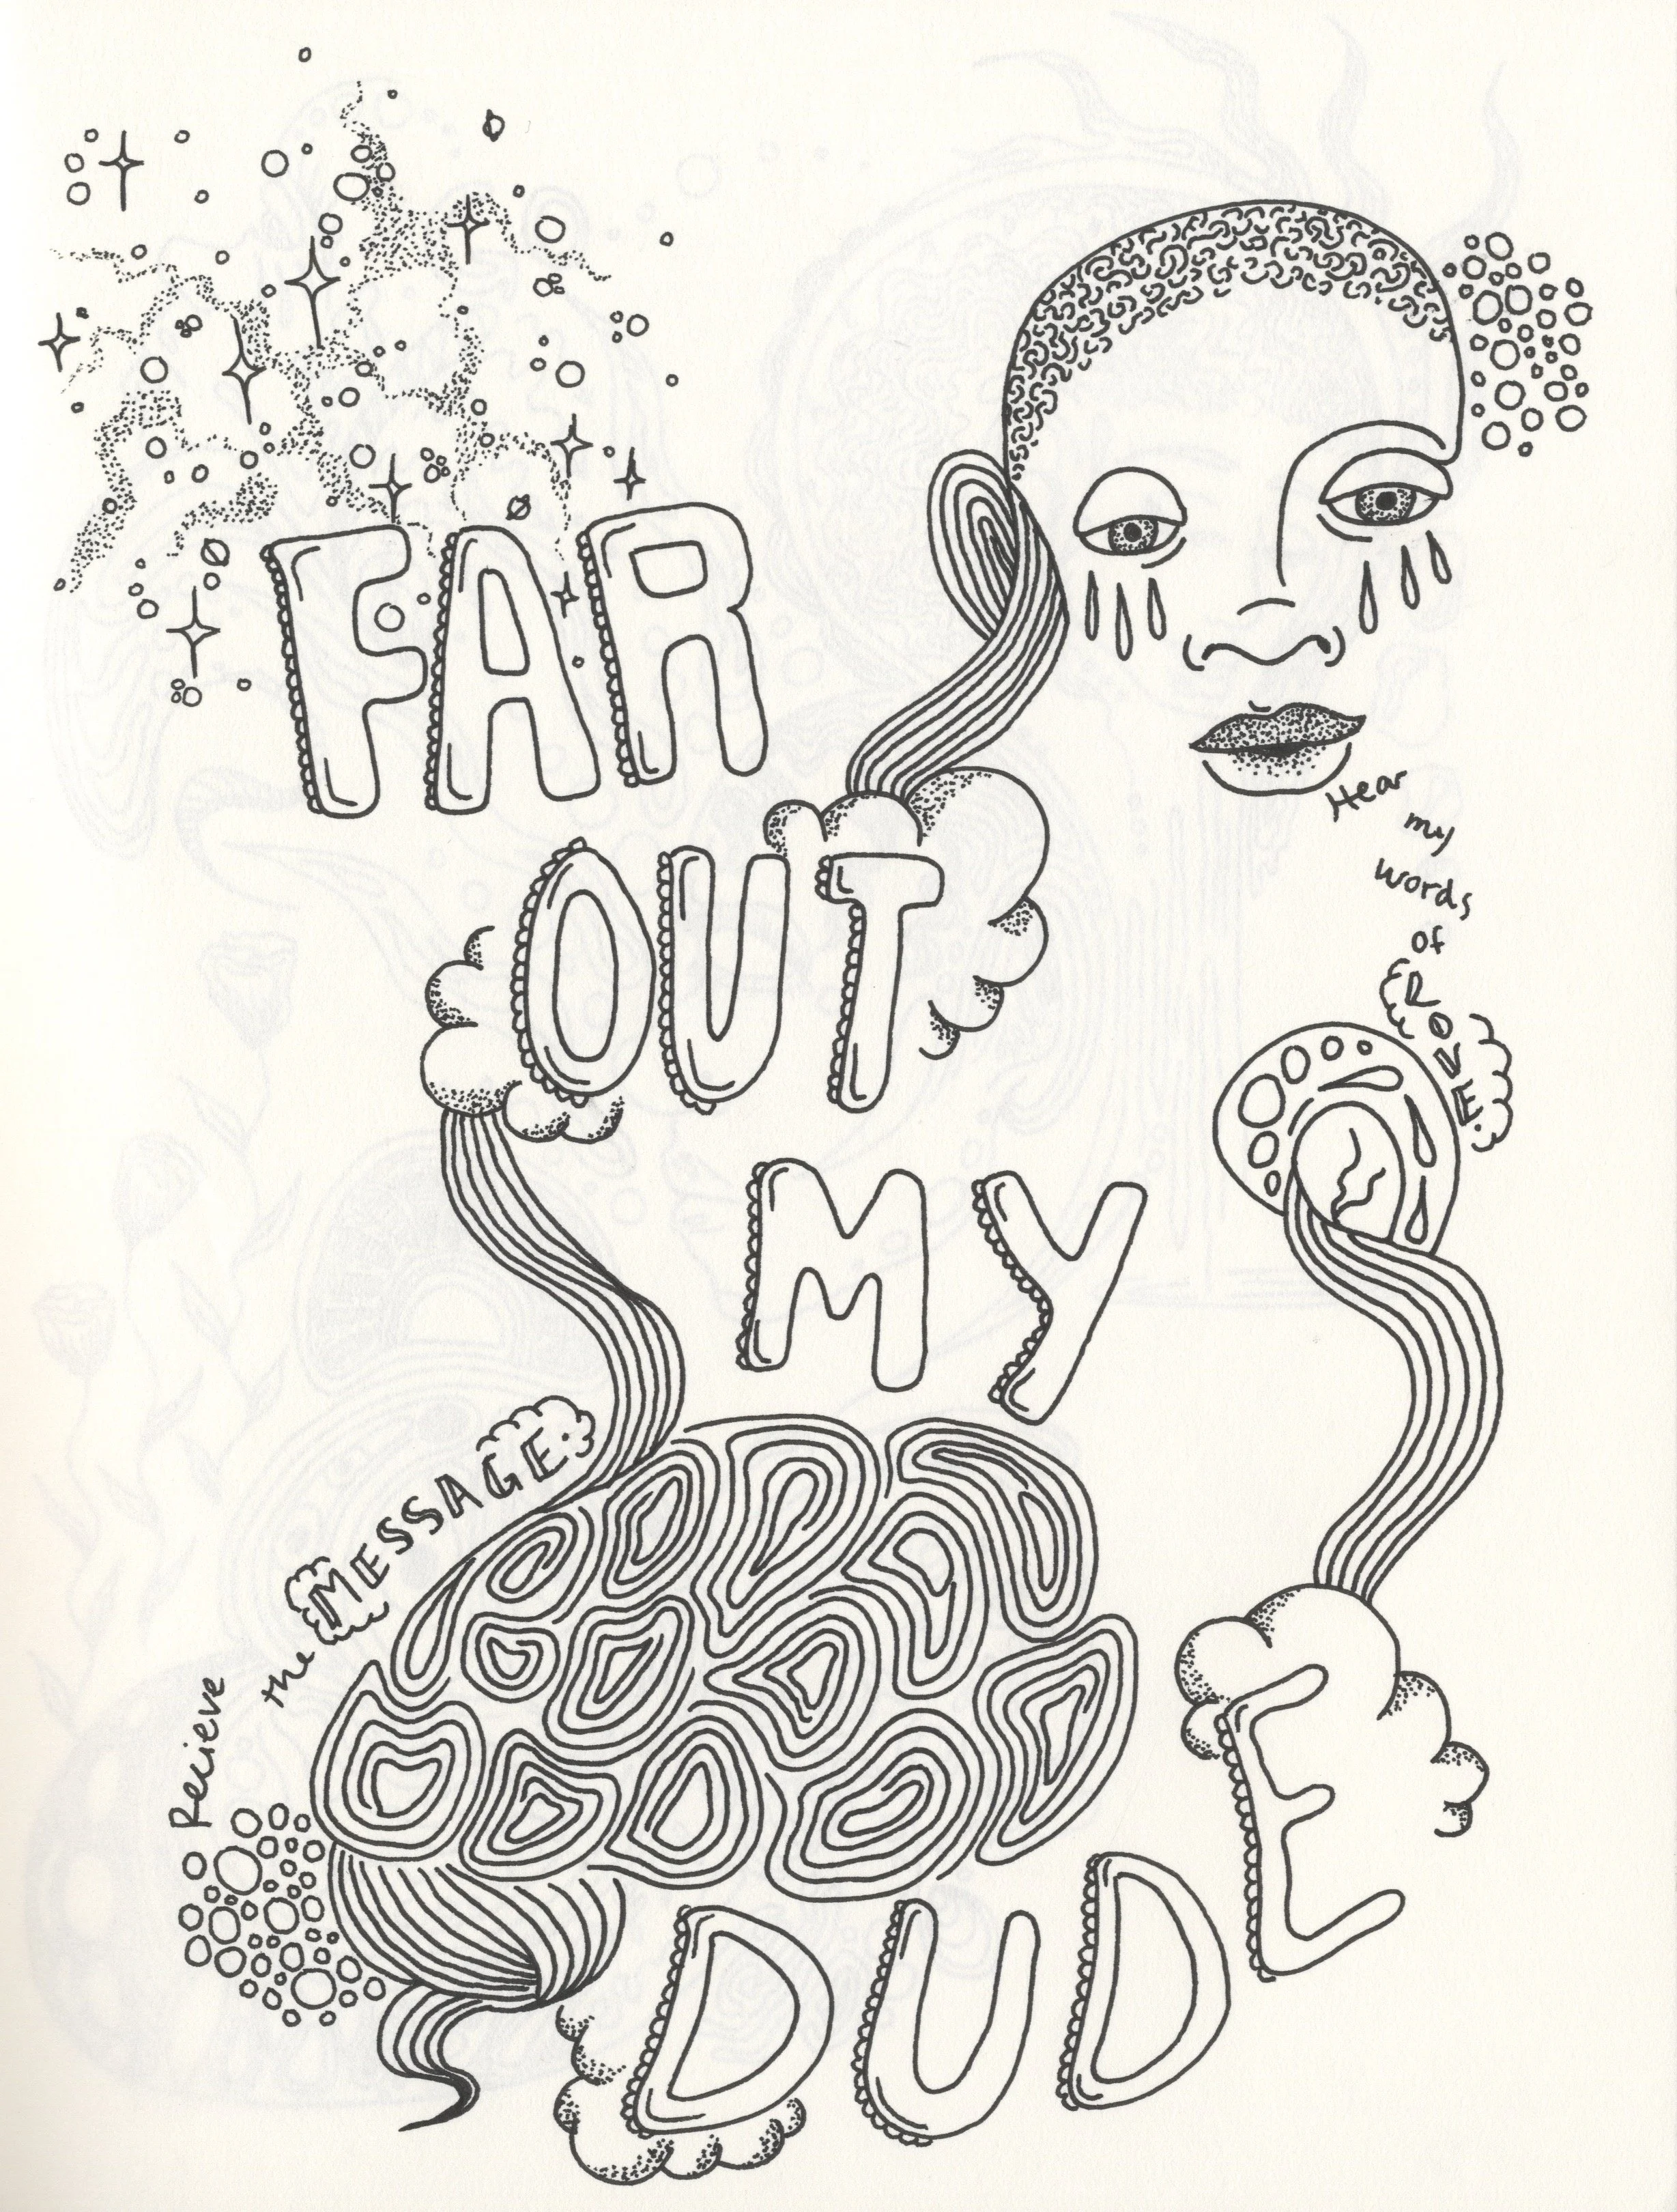 FAR
OUT
MY
DUDE
Hear
my
words
of
LOVE.
Recieve
the
MESSAGE: